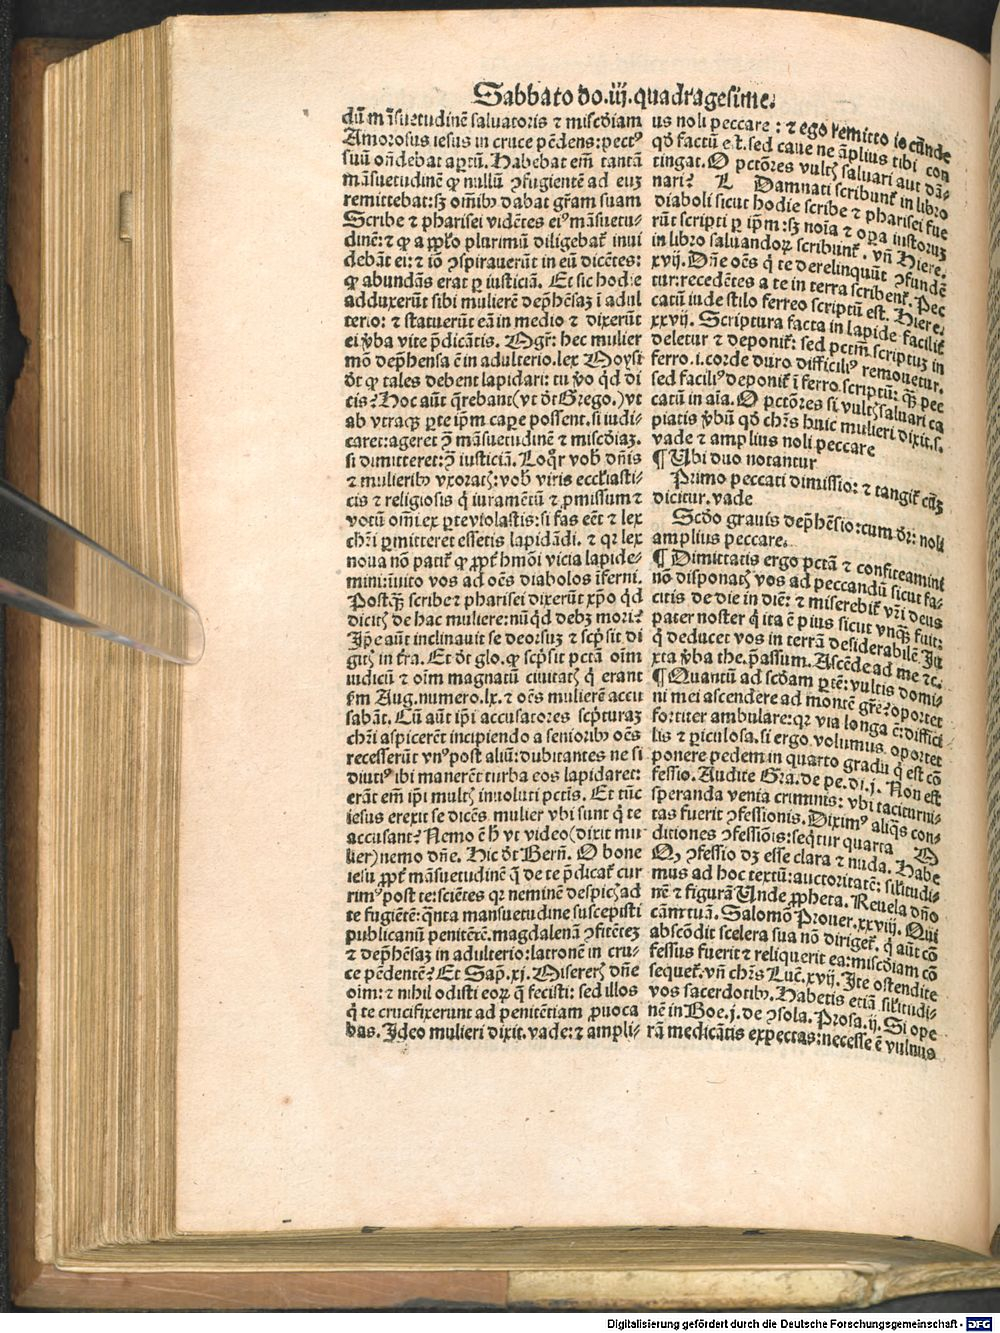 Sabbato do.iij.quadragesime.
dũ mãsuetudinẽ saluatoris ⁊ misc̄diam
Amorosus iesus in cruce pẽdens:pectꝰ
suũ oñdebat aꝑtũ. Habebat em̃ tantã
mãsuetudinẽ ꝙ nullũ ꝯfugientẽ ad euʒ
remittebat:sʒ om̃ibꝰ dabat gr̃am suam
Scribe ⁊ pharisei vidẽtes eiꝰ mãsuetu-
dinẽ:⁊ ꝙ a pp̃lo plurimũ diligebat̃ inui
debãt ei:⁊ iõ ꝯspirauerũt in eũ dicẽtes:
ꝙ abundãs erat ꝑ iusticiã. Et sic hodie
adduxerũt sibi mulierẽ dep̃hẽsaʒ ĩ adul
terio: ⁊ statuerũt eã in medio ⁊ dixerũt
ei ṽba vite p̃dicãtis. Mgr̃: hec mulier
mõ dep̃hensa ẽ in adulterio.lex Moysi
d̃t ꝙ tales debent lapidari: tu ṽo qd̃ di
cis? Hoc aũt q̃rebant(vt d̃t Grego.)vt
ab vtraqꝫ ꝑte ip̃m caꝑe possent.si iudi-
caret:ageret ꝯ̃ mãsuetudinẽ ⁊ misc̄diaʒ.
si dimitteret:ꝯ̃ iusticiã. Loq̃r vob̃ dñis
⁊ mulieribꝰ vxoratꝭ:vob̃ viris eccl̃iasti-
cis ⁊ religiosis q̃ iuramẽtũ ⁊ ꝓmissum ⁊
votũ om̃i ex ꝑte violastis:si fas eẽt ⁊ lex
chr̃i ꝑmitteret essetis lapidãdi. ⁊ qꝛ lex
noua nõ patit̃ ꝙ ꝓpt̃ hmõi vicia lapide-
mini:inuito vos ad oẽs diabolos ĩferni.
Postq̃ʒ scribe ⁊ pharisei dixerũt xp̃o qd̃
dicitꝭ de hac muliere:nũqd̃ debʒ mori?
Ip̃e aũt inclinauit se deorsuʒ ⁊ scp̃sit di
gitꝭ in t̃ra. Et d̃t glo.ꝙ scp̃sit pctã oĩm
iudicũ ⁊ oĩm magnatũ ciuitatꝭ q̃ erant
ẜm Aug.numero.lx.⁊ oẽs mulierẽ accu
sabãt. Cũ aũt ip̃i accusatores scp̃turaʒ
chr̃i aspicerẽt incipiendo a senioribꝰ oẽs
recesserũt vnꝰ post aliũ:dubitantes ne si
diutiꝰ ibi manerẽt turba eos lapidaret:
erãt em̃ ip̃i multꝭ inuoluti pctĩs. Et tũc
iesus erexit se dicẽs mulier vbi sunt q̃ te
accusant? Nemo ẽ h̃ vt video(dixit mu
lier)nemo dñe. Hic d̃t Berñ. O bone
iesu ꝓpt̃ mãsuetudinẽ q̃ de te p̃dicat̃ cur
rimꝰ post te:sciẽtes qꝛ neminẽ despicꝭ ad
te fugiẽtẽ:q̃nta mansuetudine suscepisti
publicanũ penitẽtẽ.magdalenã ꝯfitẽteʒ
⁊ dep̃hẽsaʒ in adulterio:latronẽ in cru-
ce pẽdentẽ? Et Sap.xj. Misererꝭ dñe
oĩm: ⁊ nihil odisti eoꝝ q̃ fecisti: sed illos
q̃ te crucifixerunt ad penitẽtiam ꝓuoca
bas. Ideo mulieri dixit.vade:⁊ ampli-
us noli peccare : ⁊ ego remitto
qd̃ factũ est.sed caue ne ãplius tibi con
tingat. O pctõres vultꝭ saluari aut dã-
nari? Damnati scribunt̃ in libro
diaboli sicut hodie scribe ⁊ pharisei fue
rũt scripti ꝑ ip̃m:sʒ noĩa ⁊ oꝑa iustoruʒ
in libro saluandoꝝ scribunt̃. vñ Hiere.
xvij. Dñe oẽs q̃ te derelinquũt ꝯfundẽ
tur:recedẽtes a te in terra scribent̃. Pec
catũ iude stilo ferreo scriptũ est. Hiere.
xxvij. Scriptura facta in lapide facilit̃
deletur ⁊ deponit̃: sed pctm̃ scriptuʒ in
ferro.i.corde duro difficiliꝰ remouetur.
sed faciliꝰ deponit̃ ĩ ferro scriptũ: q̃ʒ pec
catũ in aĩa. O pctõres si vultꝭ saluari ca
piatis ṽbũ qd̃ chr̃s huic mulieri dixit.s.
vade ⁊ amplius noli peccare
¶ Ubi duo notantur
Primo peccati dimissio: ⁊ tangit̃ cũʒ
dicitur.vade
Scđo grauis dep̃hẽsio:cum d̃r: noli
amplius peccare.
¶ Dimittatis ergo pctã ⁊ confiteamini
nõ disponatꝭ vos ad peccandũ sicut fa-
citis de die in diẽ: ⁊ miserebit̃ vr̃i deus
pater noster q̃ ita ẽ pius sicut vnq̃ʒ fuit:
q̃ deducet vos in terrã desiderabilẽ. Iu
xta ṽba the.p̃assum. Ascẽde ad me ⁊c.
¶ Quantũ ad scđam ꝑtẽ: vultis domi-
ni mei ascendere ad montẽ gr̃e? oportet
fortiter ambulare:qꝛ via longa ẽ:diffici
lis ⁊ ꝑiculosa.si ergo volumus oportet
ponere pedem in quarto gradu q̃ est cõ
fessio. Audite Gra.de pe.di.j. Non est
speranda venia criminis: vbi taciturni-
tas fuerit ꝯfessionis. Diximꝰ aliq̃s con-
ditiones ꝯfessiõis:seq̃tur quarta
Q, ꝯfessio dʒ esse clara ⁊ nuda. Habe
mus ad hoc textũ:auctoritatẽ: sil̃itudi-
nẽ ⁊ figurã Unde ꝓpheta. Reuela dño
Salomõ Prouer.xxviij. Qui
abscõdit scelera sua nõ diriget̃. q̃ aũt cõ
fessus fuerit ⁊ reliquerit ea:misc̄diam cõ
sequet̃.vñ chr̃s Luc̃.xvij. Ite ostendite
vos sacerdotibꝰ. Habetis etiã sil̃itudi-
nẽ in Boe.j.de ꝯsola. Prosa.ij. Si ope
rã medicãtis expectas:necesse ẽ vulnus
Digitalisierung gefördert durch die Deutsche Forschungsgemeinschaft - DFG